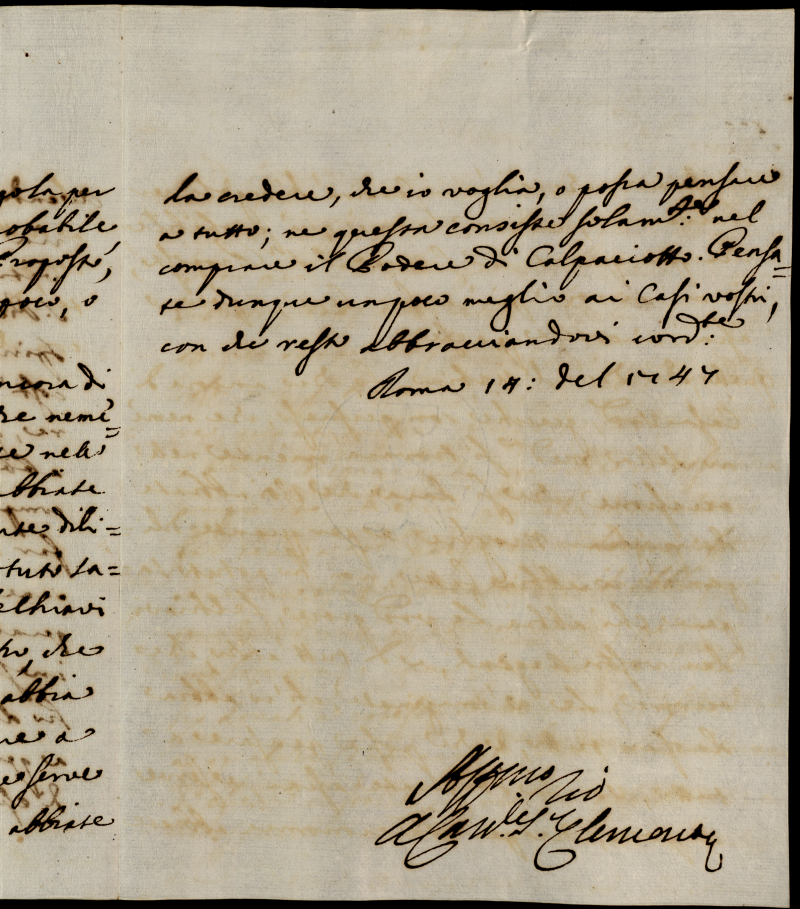 gola per
obabile
Proposte,
poco, o
ancora di
che neme=
ce nele
abbiate
nte dili=
tuto sa=
chiavi
tro, che
abbia
ne a
e serve
abbiate
la credere, che io voglia, o possa pensare
a tutto; ne questa consiste solam.te nel
comprare il Podere di Calpaciotto. Pensa=
te dunque un poco meglio ai Casi vostri,
con che resto abbracciandovi cord.te
Roma 18: del 1747
Affmo Zio
A Card.le S. Clemente